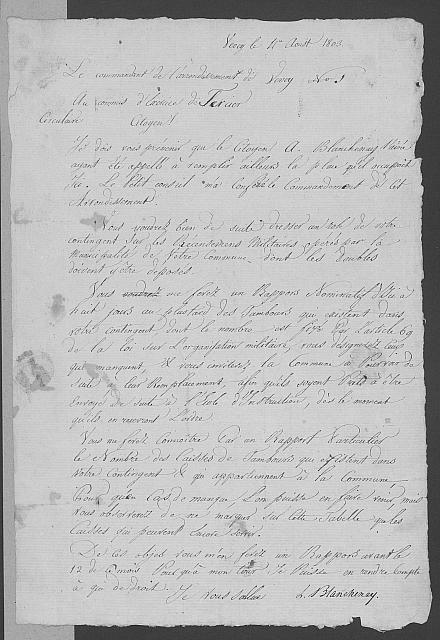 Vevey le 1r Aoust 1803.
Le commandant de l'arrondissement de Vevey No 1
Au commis d'exercice de Tercier
Circulaire Citoyen!
Je dois vous prévenir que le Citoyen A. Blanchenay
ayant été appellé à remplir ailleurs la place qu'il occupoit
Ici. Le Petit conseil m'a conféré le Commandement de cet
Arrondissement.
Vous voudrez bien de suite dresser un de votre
contingent sur les Recensemens Militaires opérés par la
Municipalité de Votre Commune dont les doubles
doivent y être déposés.
Vous voudrez me ferez un Rapport Nominatif d'ici à
huit jours au plustard des Tambours qui existent dans
votre contingent dont le nombre est fixé par l'article 69
de la loi sur l'organisation militaire, vous désignerez ceux
qui manquent, & vous inviterez la Commune à Pourvoir de
suite à leur Remplacement, afin qu'ils soyent Prêts à être
Envoyé de suite à l'Ecole d'Instruction, dès le moment
qu'ils en recevront l'ordre.
Vous me ferez connoitre Par un Rapport Particulier
le Nombre des Caisses de Tambours qui existent dans
Votre Contingent & qui appartiennent à la Commune
Pour qu'en cas de manque l'on puisse en faire venir mais
vous observerez de ne marquer sur cette Tabelle que les
Caisses qui peuvent encore servir.
De ces objets vous m'en ferez un Rapport avant le
12 de ce mois Pour qu'à mon tour Je Puisse en rendre compte
à qui de droit. Je Vous Salue L. Blanchenay.